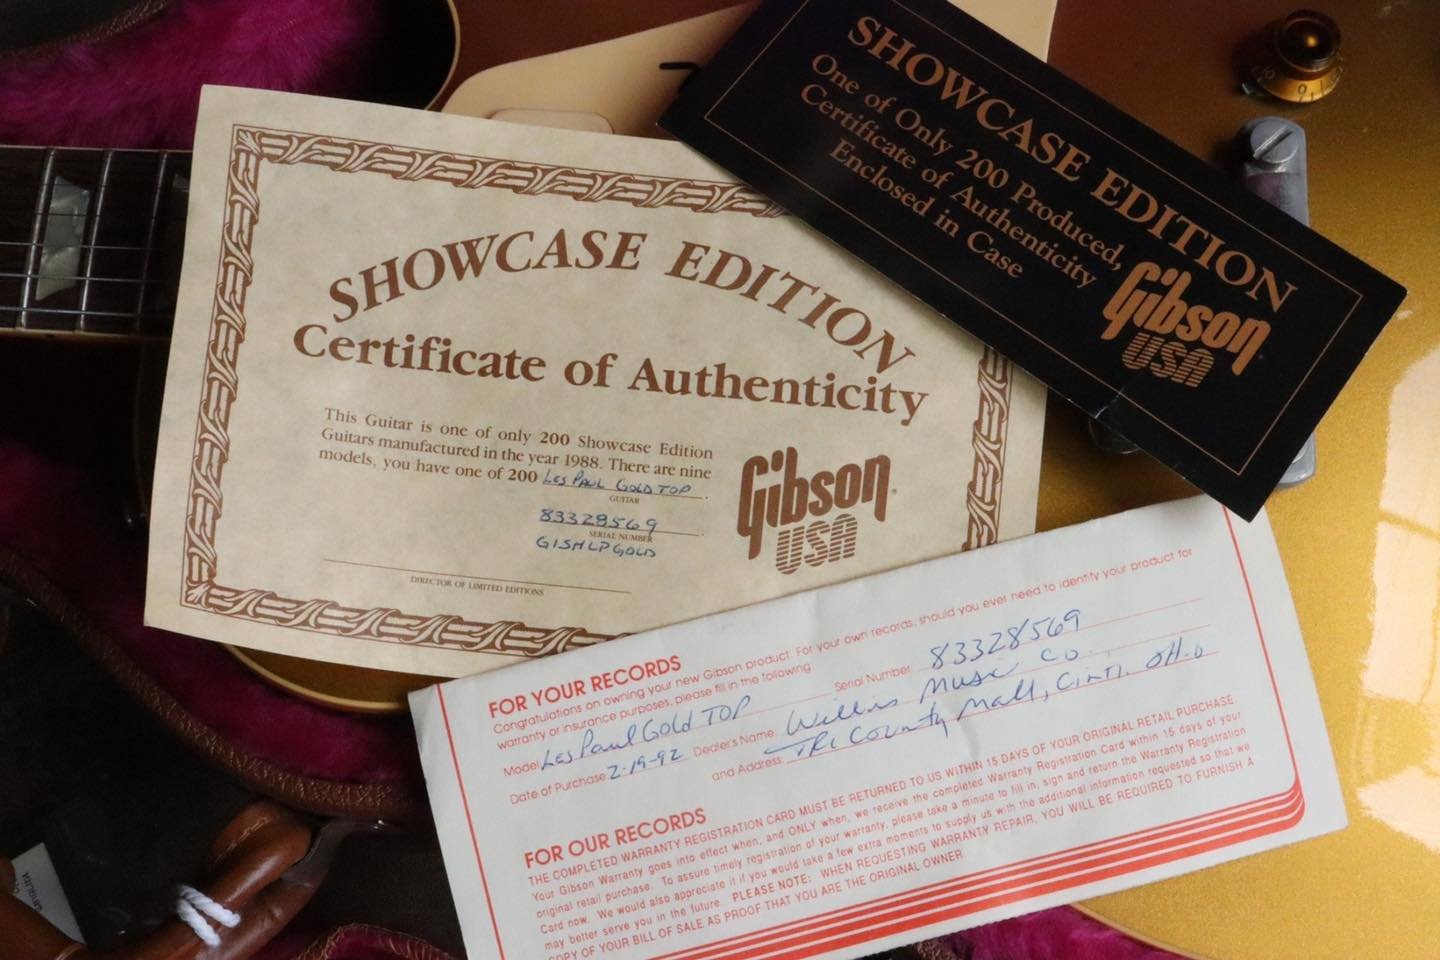 SHOWCASE EDITION
One of Only 200 Produced,
Certificate of Authenticity
Enclosed in Case
Gibson
USA
SHOWCASE EDITION
Certificate of Authenticity
This Guitar is one of only 200 Showcase Edition
Guitars manufactured in the year 1988. There are nine
models, you have one of 200 Les Paul Gold Top.
GUITAR
83328569.
SERIAL NUMBER
GISHLPGOLD
DIRECTOR OF LIMITED EDITIONS
Gibson
USA
FOR YOUR RECORDS
Congratulations on owning your new Gibson product. For your own records, should you ever need to identify your product for
warranty or insurance purposes, please fill in the following
Model Les Paul Gold TOP Serial Number 83328569
Date of Purchase 2-19-92 Dealer's Name Willis Music Co.
and Address TRI County Mall, Cinti, OH.
FOR OUR RECORDS
THE COMPLETED WARRANTY REGISTRATION CARD MUST BE RETURNED TO US WITHIN 15 DAYS OF YOUR ORIGINAL RETAIL PURCHASE.
Your Gibson Warranty goes into effect when, and ONLY when, we receive the completed Warranty Registration Card within 15 days of your
original retail purchase. To assure timely registration of your warranty, please take a minute to fill in, sign and return the Warranty Registration
Card now. We would also appreciate it if you would take a few extra moments to supply us with the additional information requested so that we
may better serve you in the future. PLEASE NOTE: WHEN REQUESTING WARRANTY REPAIR, YOU WILL BE REQUIRED TO FURNISH A
COPY OF YOUR BILL OF SALE AS PROOF THAT YOU ARE THE ORIGINAL OWNER.